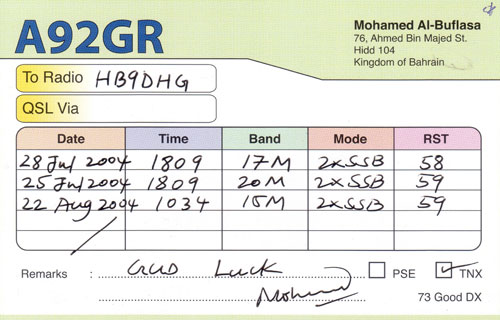 A92GR
Mohamed Al-Buflasa
76, Ahmed Bin Majed St.
Hidd 104
Kingdom of Bahrain
To Radio HB9DHG
QSL Via
Date Time Band Mode RST
28 Jul 2004 1809 17M 2xSSB 58
25 Jul 2004 1809 20M 2xSSB 59
22 Aug 2004 1034 15M 2xSSB 59
Remarks : GUD LUCK PSE TNX
Mohamed 73 Good DX